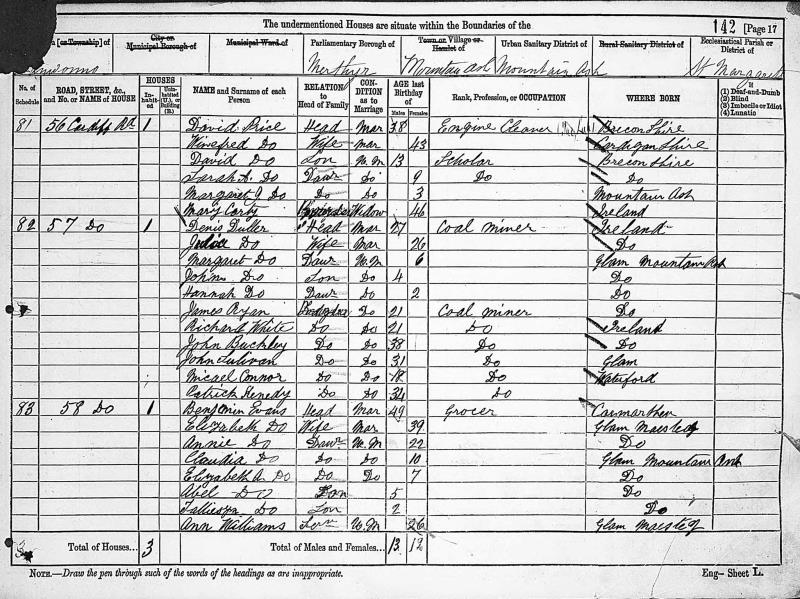 The undermentioned Houses are situate within the Boundaries of the
142 [Page 17
[or Township] of
City or Municipal Borough of
Municipal Ward of
Parliamentary Borough of
Town or Village or Hamlet of
Urban Sanitary District of
Rural Sanitary District of
Ecclesiastical Parish or District of
Merthyr
Mountain Ash
Mountain Ash
St Margarets
No. of Schedule
ROAD, STREET, &c., and No. or NAME of HOUSE
HOUSES
Inhabited
Uninhabited (U.), or Building (B.)
NAME and Surname of each Person
RELATION to Head of Family
CONDITION as to Marriage
AGE last Birthday of
Males
Females
Rank, Profession, or OCCUPATION
WHERE BORN
If
(1) Deaf-and-Dumb
(2) Blind
(3) Imbecile or Idiot
(4) Lunatic
81 56 Cardiff Rd 1 David Price Head Mar 38 Engine Cleaver Breconshire
Winefred Do Wife Mar 43 Cardiganshire
David Do Son U.M 13 Scholar Breconshire
Sarah A. Do Daur Do 9 Do Do
Margaret J Do Do Do 3 Mountain Ash
Mary Corty Widow 46 Ireland
82 57 Do 1 Denis Duller Head Mar 27 Coal miner Ireland
Julia Do Wife Mar 26 Do
Margaret Do Daur U.M 6 Glam Mountain Ash
John Do Son Do 4 Do
Hannah Do Daur Do 2 Do
James Ryan Do 21 Coal miner Do
Richard White Do Do 21 Do Ireland
John Buckley Do Do 38 Do Do
John Sulivan Do Do 31 Do Glam
Micael Connor Do Do 18 Do Waterford
Catrick Kenedy Do Do 34 Do
83 58 Do 1 Benjamin Evans Head Mar 49 Grocer Carmarthen
Elizabeth Do Wife Mar 39 Glam Maesteg
Annie Do Daur U.M 22 Do
Claudia Do Do Do 10 Glam Mountain Ash
Elizabeth A Do Do Do 7 Do
Abel Do Son 5 Do
Talliesin Do Son 2 Do
Ann Williams U.M 26 Glam Maesteg
3 Total of Houses... 3 Total of Males and Females... 13 12
NOTE.—Draw the pen through such of the words of the headings as are inappropriate.
Eng—Sheet L.